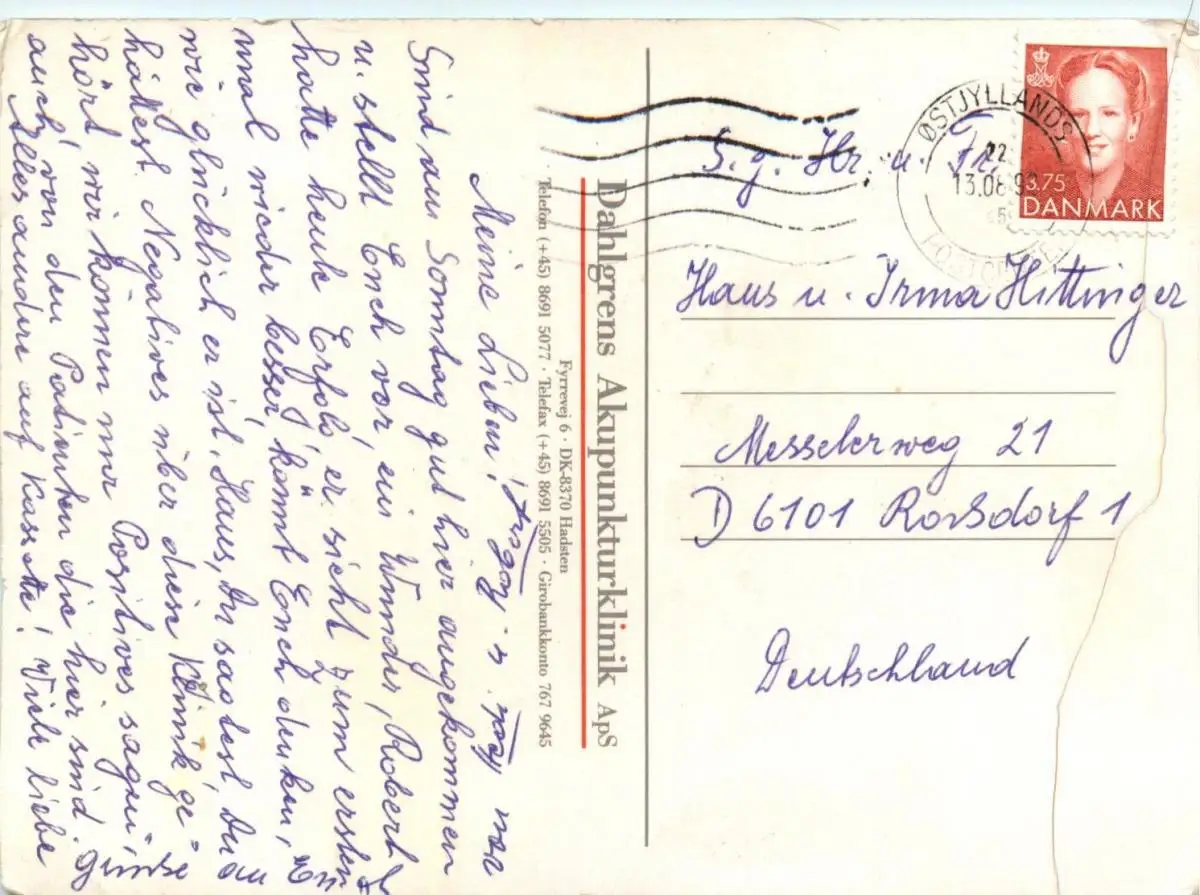 Meine Lieben!
Sind am Sonntag gut hier angekommen
u. stellt Euch vor, ein Wunder, Robert
hatte heute Erfolg, er sieht zum ersten
mal wieder besser, könnt Euch denken,
wie glücklich er ist. Hans, Du sagtest, Du
hättest Negatives über diese Klinik ge=
hört, wir können nur Positives sagen,
auch von den Patienten die hier sind.
Alles andere auf Kassette! Viele liebe
Grüße
von
Dahlgrens Akupunkturklinik ApS
Fyrrevej 6 · DK-8370 Hadsten
Telefon (+45) 8691 5077 · Telefax (+45) 8691 5505 · Girobankkonto 767 9645
ØSTJYLLANDS
13.08.9
3.75
DANMARK
S.g. Hr. u. Fr.
Hans u. Irma Hittinger
Messelerweg 21
D 6101 Rossdorf 1
Deutschland